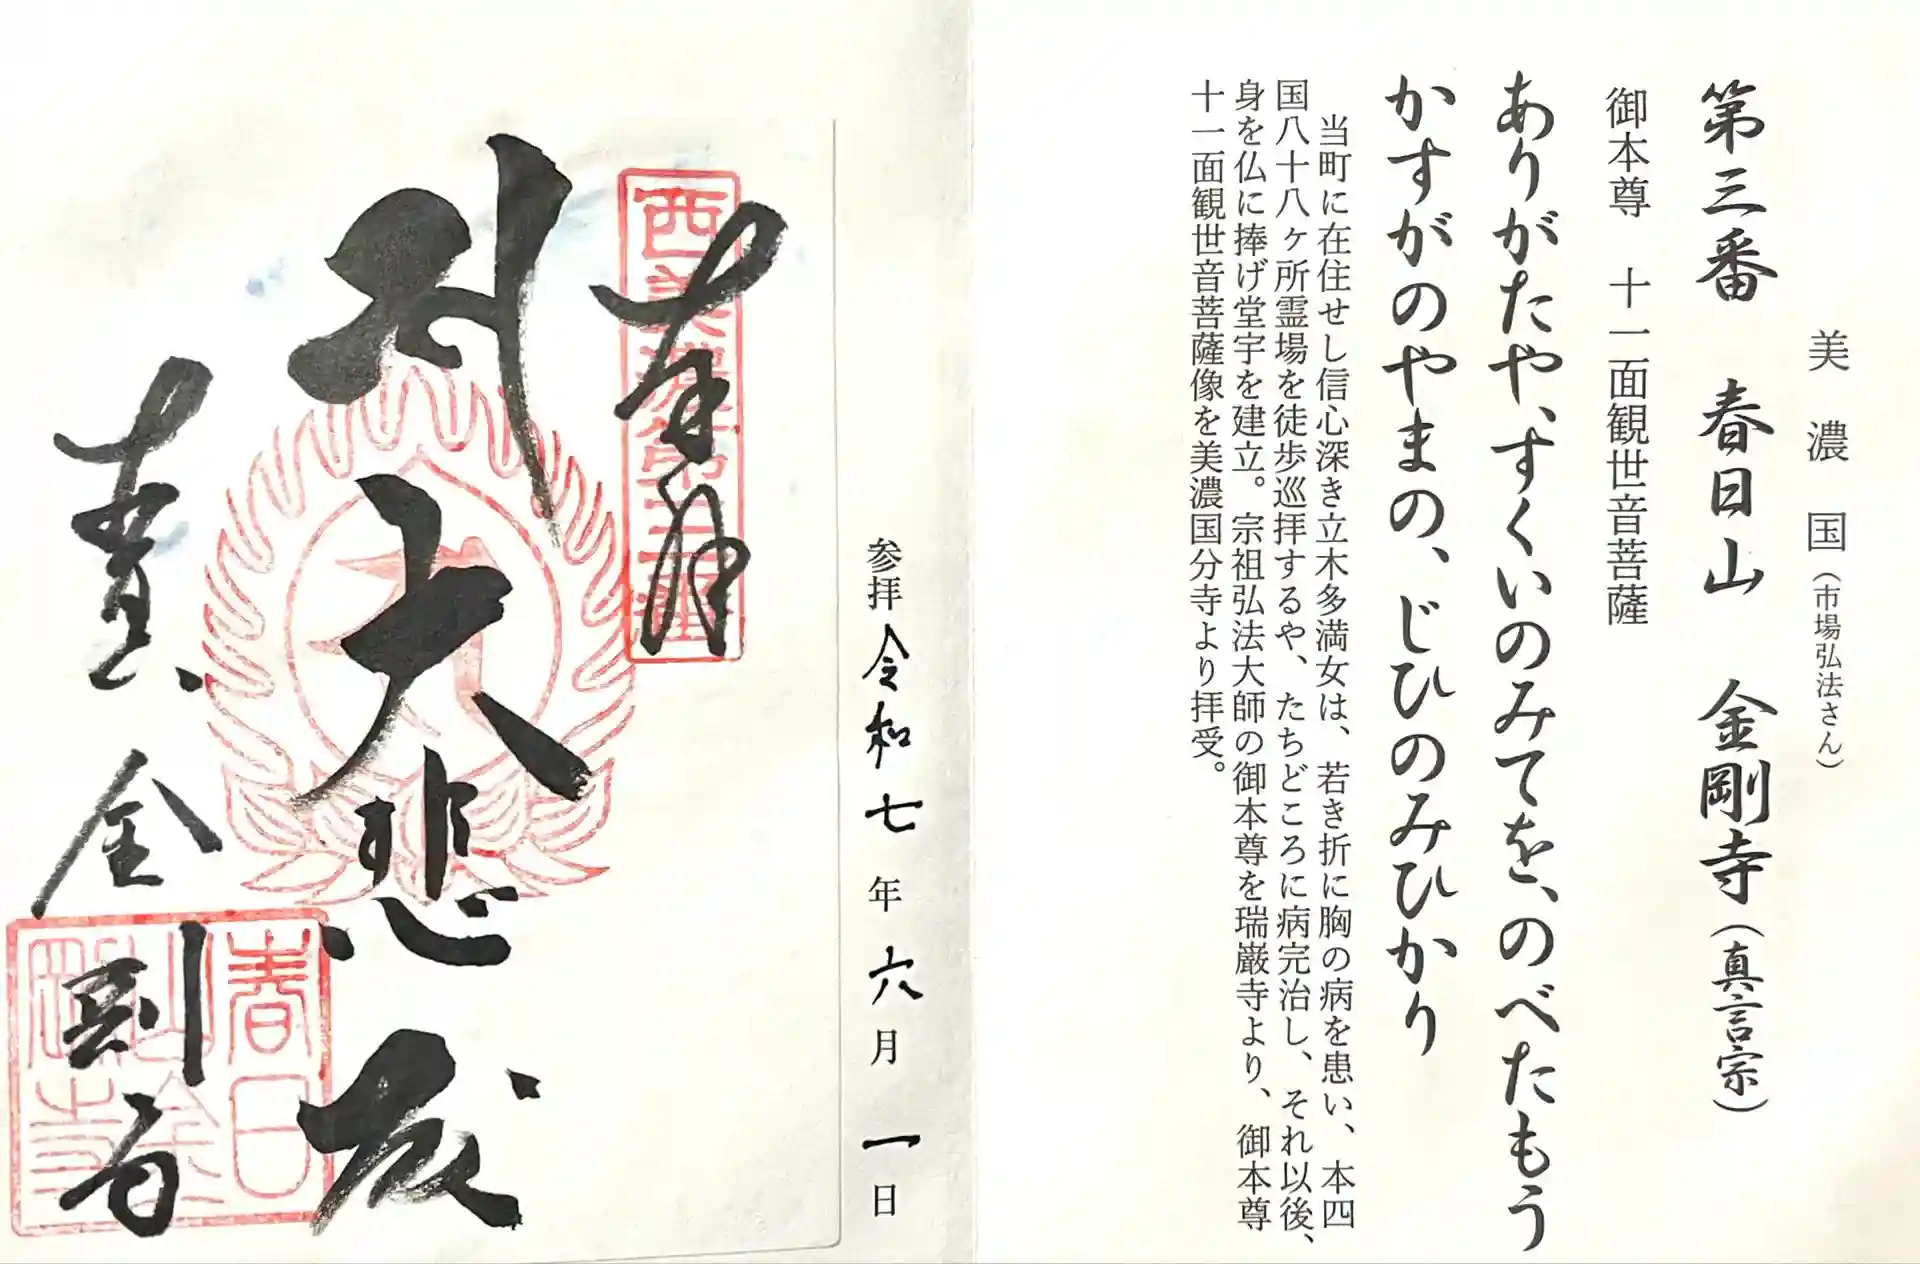 美濃国（市場弘法さん）
第三番　春日山　金剛寺（真言宗）
御本尊　十一面観世音菩薩
ありがたや、すくいのみてを、のべたもう
かすがのやまの、じひのみひかり
当町に在住せし信心深き立木多満女は、若き折に胸の病を患い、本四
国八十八ヶ所霊場を徒歩巡拝するや、たちどころに病完治し、それ以後、
身を仏に捧げ堂宇を建立。宗祖弘法大師の御本尊を瑞巌寺より、御本尊
十一面観世音菩薩像を美濃国分寺より拝受。
参拝令和七年六月一日
奉拝
西美濃第三番
大悲殿
春日山
金剛寺
春日山金剛寺